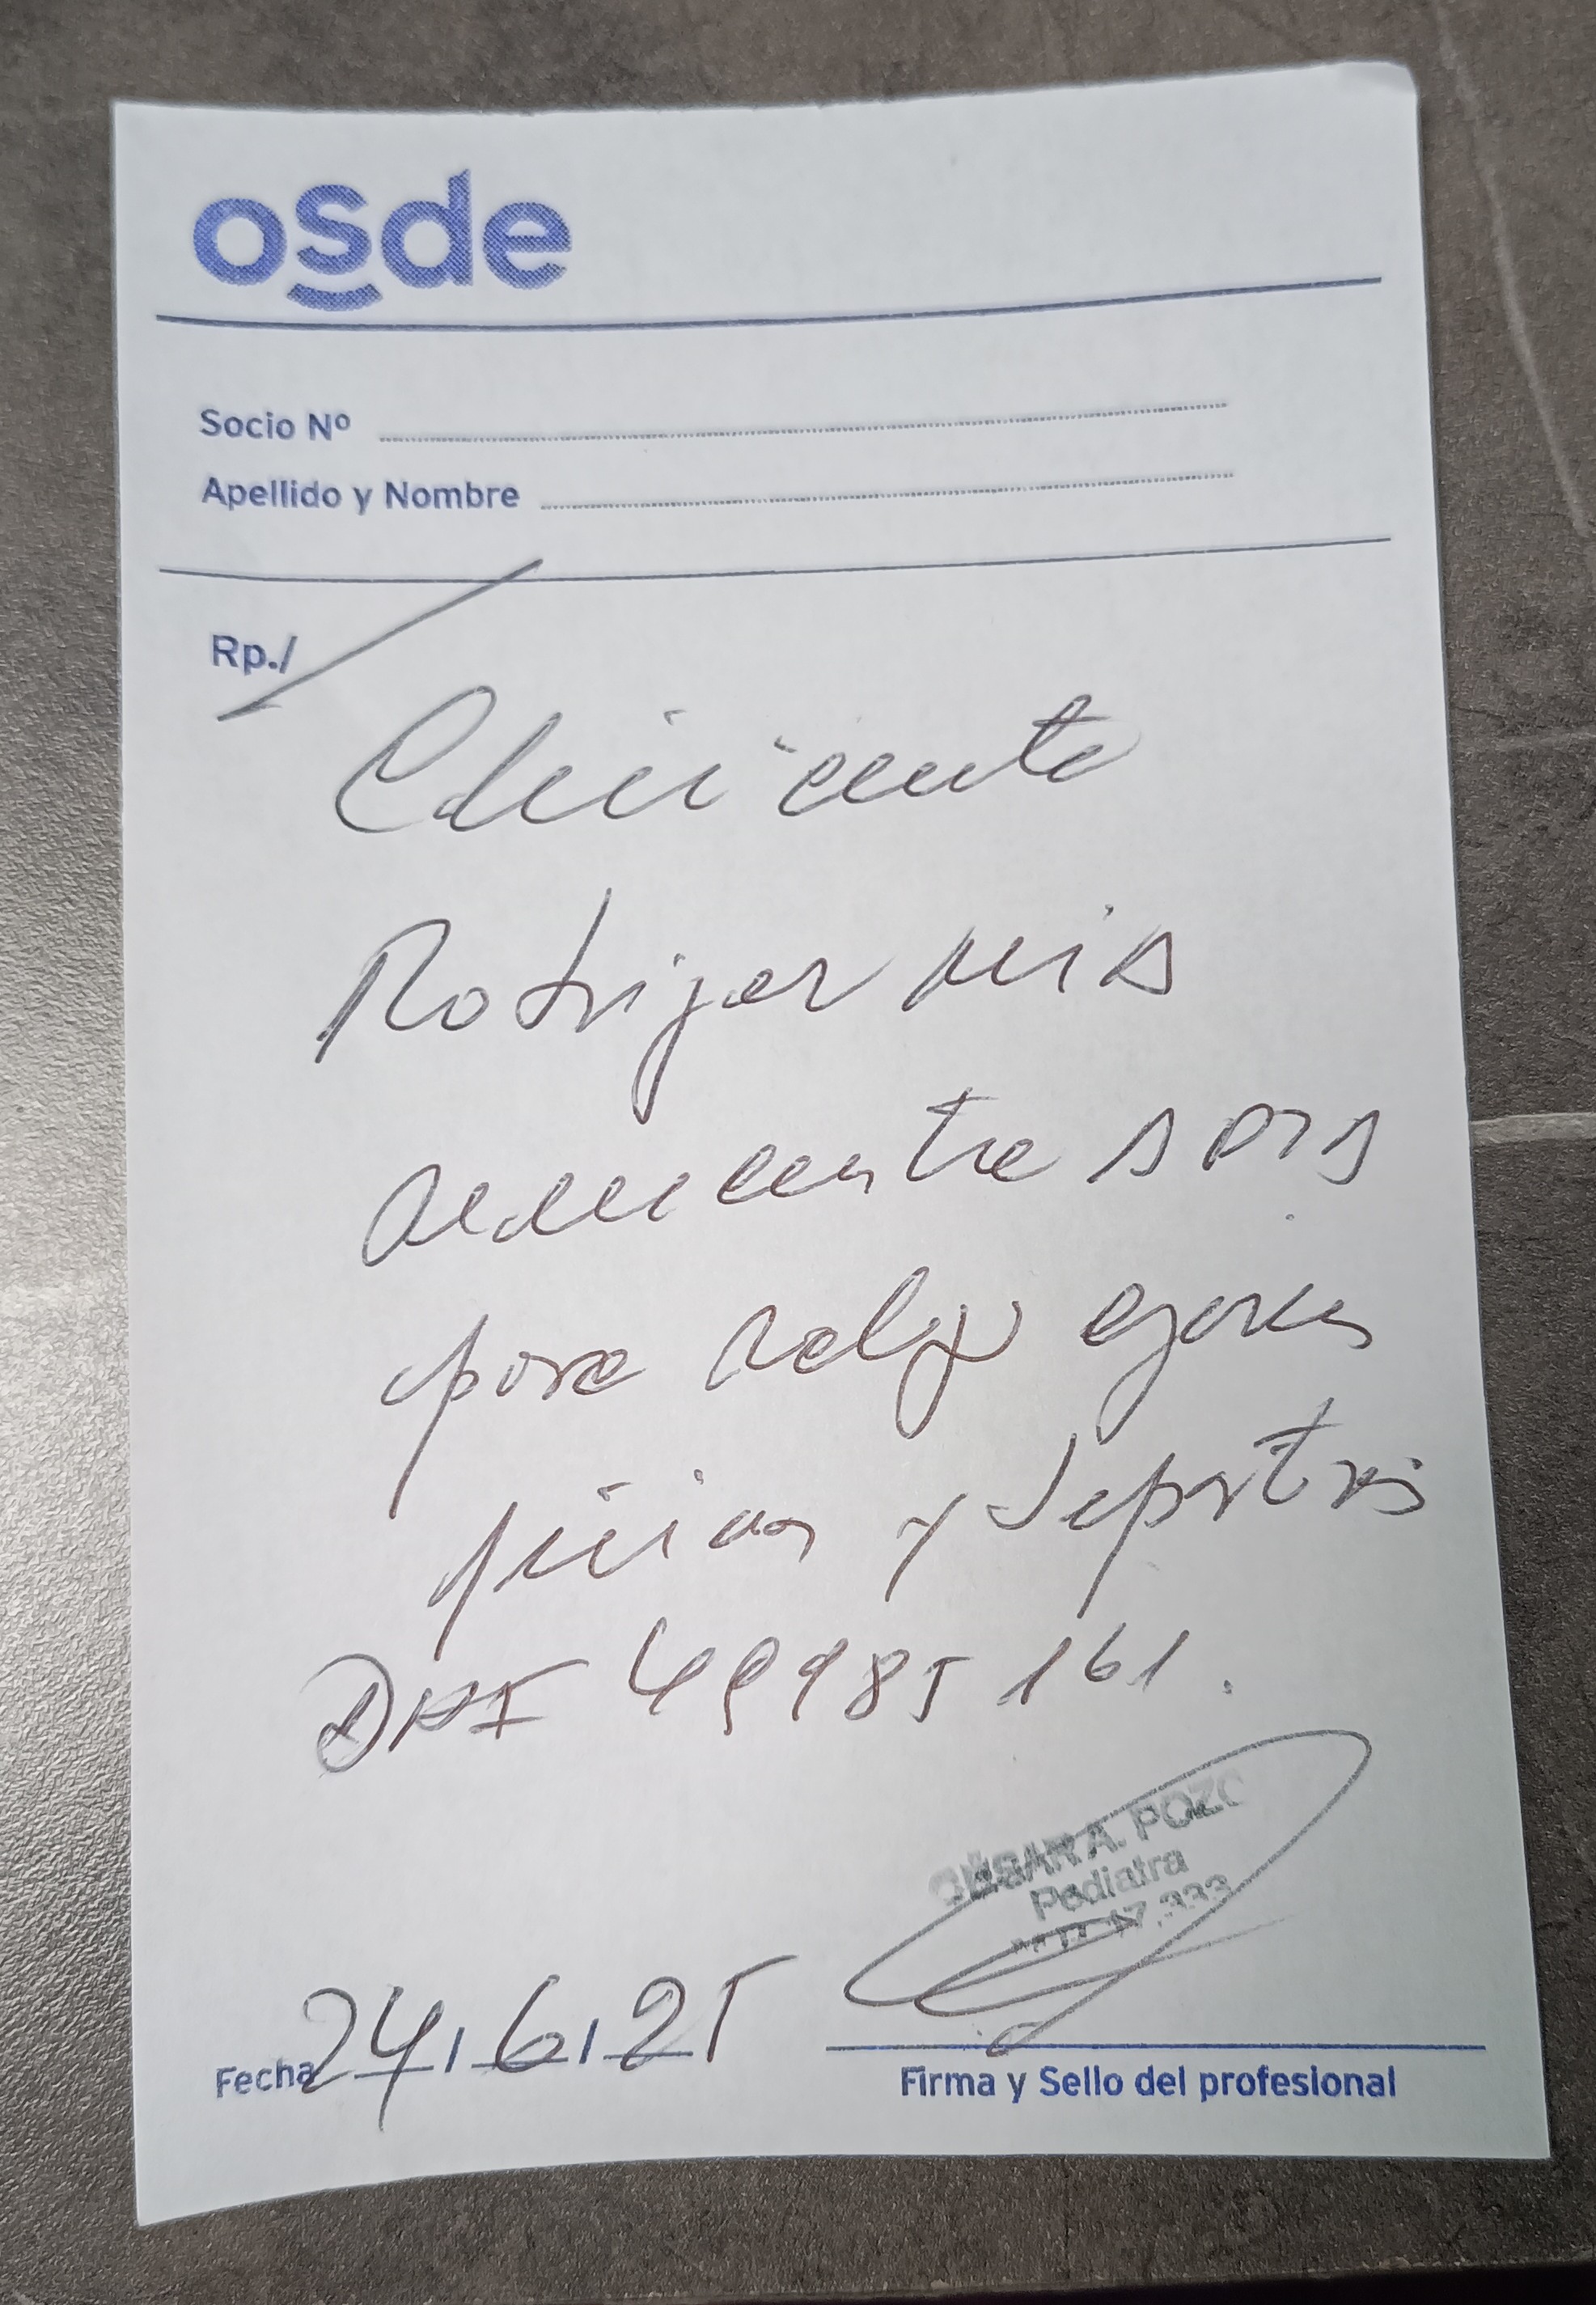 osde
Socio Nº
Apellido y Nombre
Rp./
Clinicamente
Rodriguez
se encuentra apta
para realizar ejercicios
físicos y deportivos
DNI 49985161.
CÉSAR A. POZO
Pediatra
17.333
Fecha 24/6/25
Firma y Sello del profesional